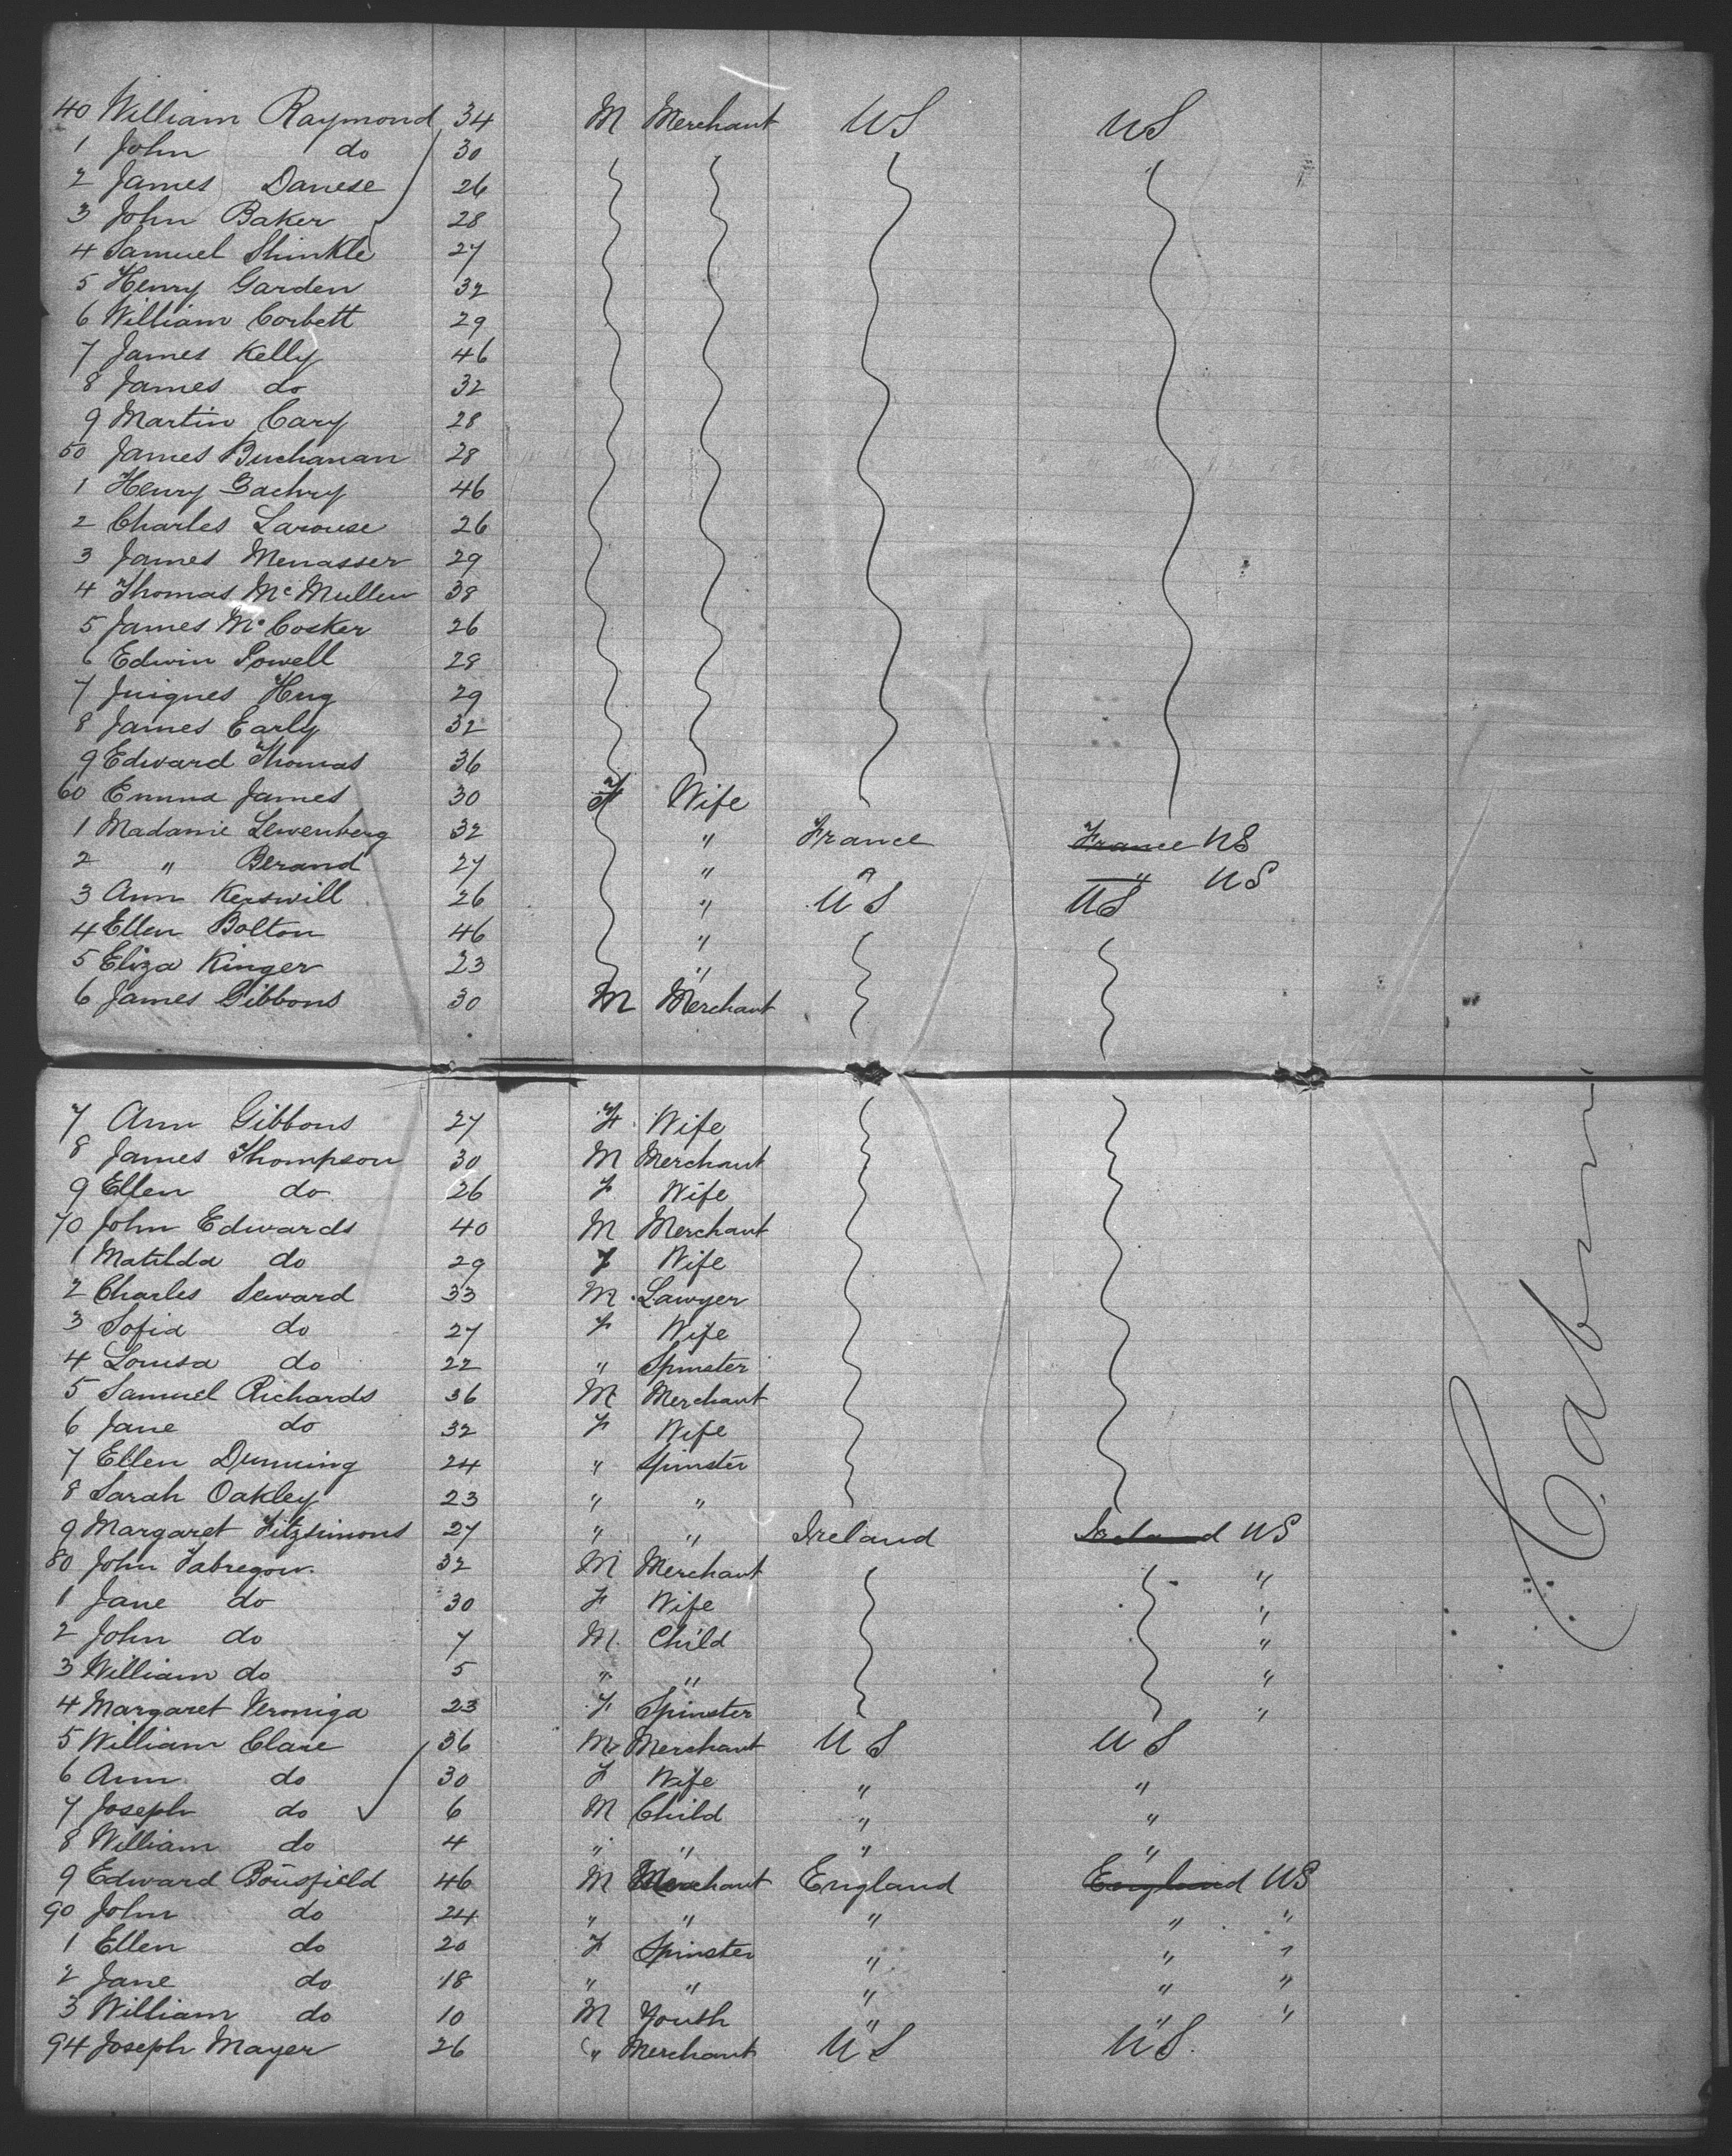 40 William Raymond 34 M Merchant US US
1 John do 30
2 James Danese 26
3 John Baker 28
4 Samuel Shinkle 27
5 Henry Garden 32
6 William Corbett 29
7 James Kelly 46
8 James do 32
9 Martin Cary 28
50 James Buchanan 28
1 Henry Zachry 46
2 Charles Larouse 26
3 James Menasser 29
4 Thomas McMullen 38
5 James McCosker 26
6 Edwin Powell 28
7 29
8 James Early 32
9 Edward Thomas 36
60 Emma James 30 F Wife
1 Madame Lewenberg 32 " France France US
2 " Berand 27 " " " US
3 Ann Kerswill 26 " US US
4 Ellen Bolton 46 "
5 Eliza Kinger 23 "
6 James Gibbons 30 M Merchant
7 Ann Gibbons 27 F Wife
8 James Thompson 30 M Merchant
9 Ellen do 26 F Wife
70 John Edwards 40 M Merchant
1 Matilda do 29 F Wife
2 Charles Seward 33 M Lawyer
3 Sofia do 27 F Wife
4 Louisa do 22 " Spinster
5 Samuel Richards 36 M Merchant
6 Jane do 32 F Wife
7 Ellen Dunning 24 " Spinster
8 Sarah Oakley 23 " "
9 Margaret Fitzsimons 27 " " Ireland Ireland US
80 John Fabregow 32 M Merchant "
1 Jane do 30 F Wife "
2 John do 7 M Child "
3 William do 5 " " "
4 Margaret Veroniga 23 F Spinster "
5 William Clare 36 M Merchant US US
6 Ann do 30 F Wife " "
7 Joseph do 6 M Child " "
8 William do 4 " " " "
9 Edward Bousfield 46 M Merchant England England US
90 John do 24 " " " " "
1 Ellen do 20 F Spinster " " "
2 Jane do 18 " " " " "
3 William do 10 M Youth " " "
94 Joseph Mayer 26 " Merchant US US
Cabin